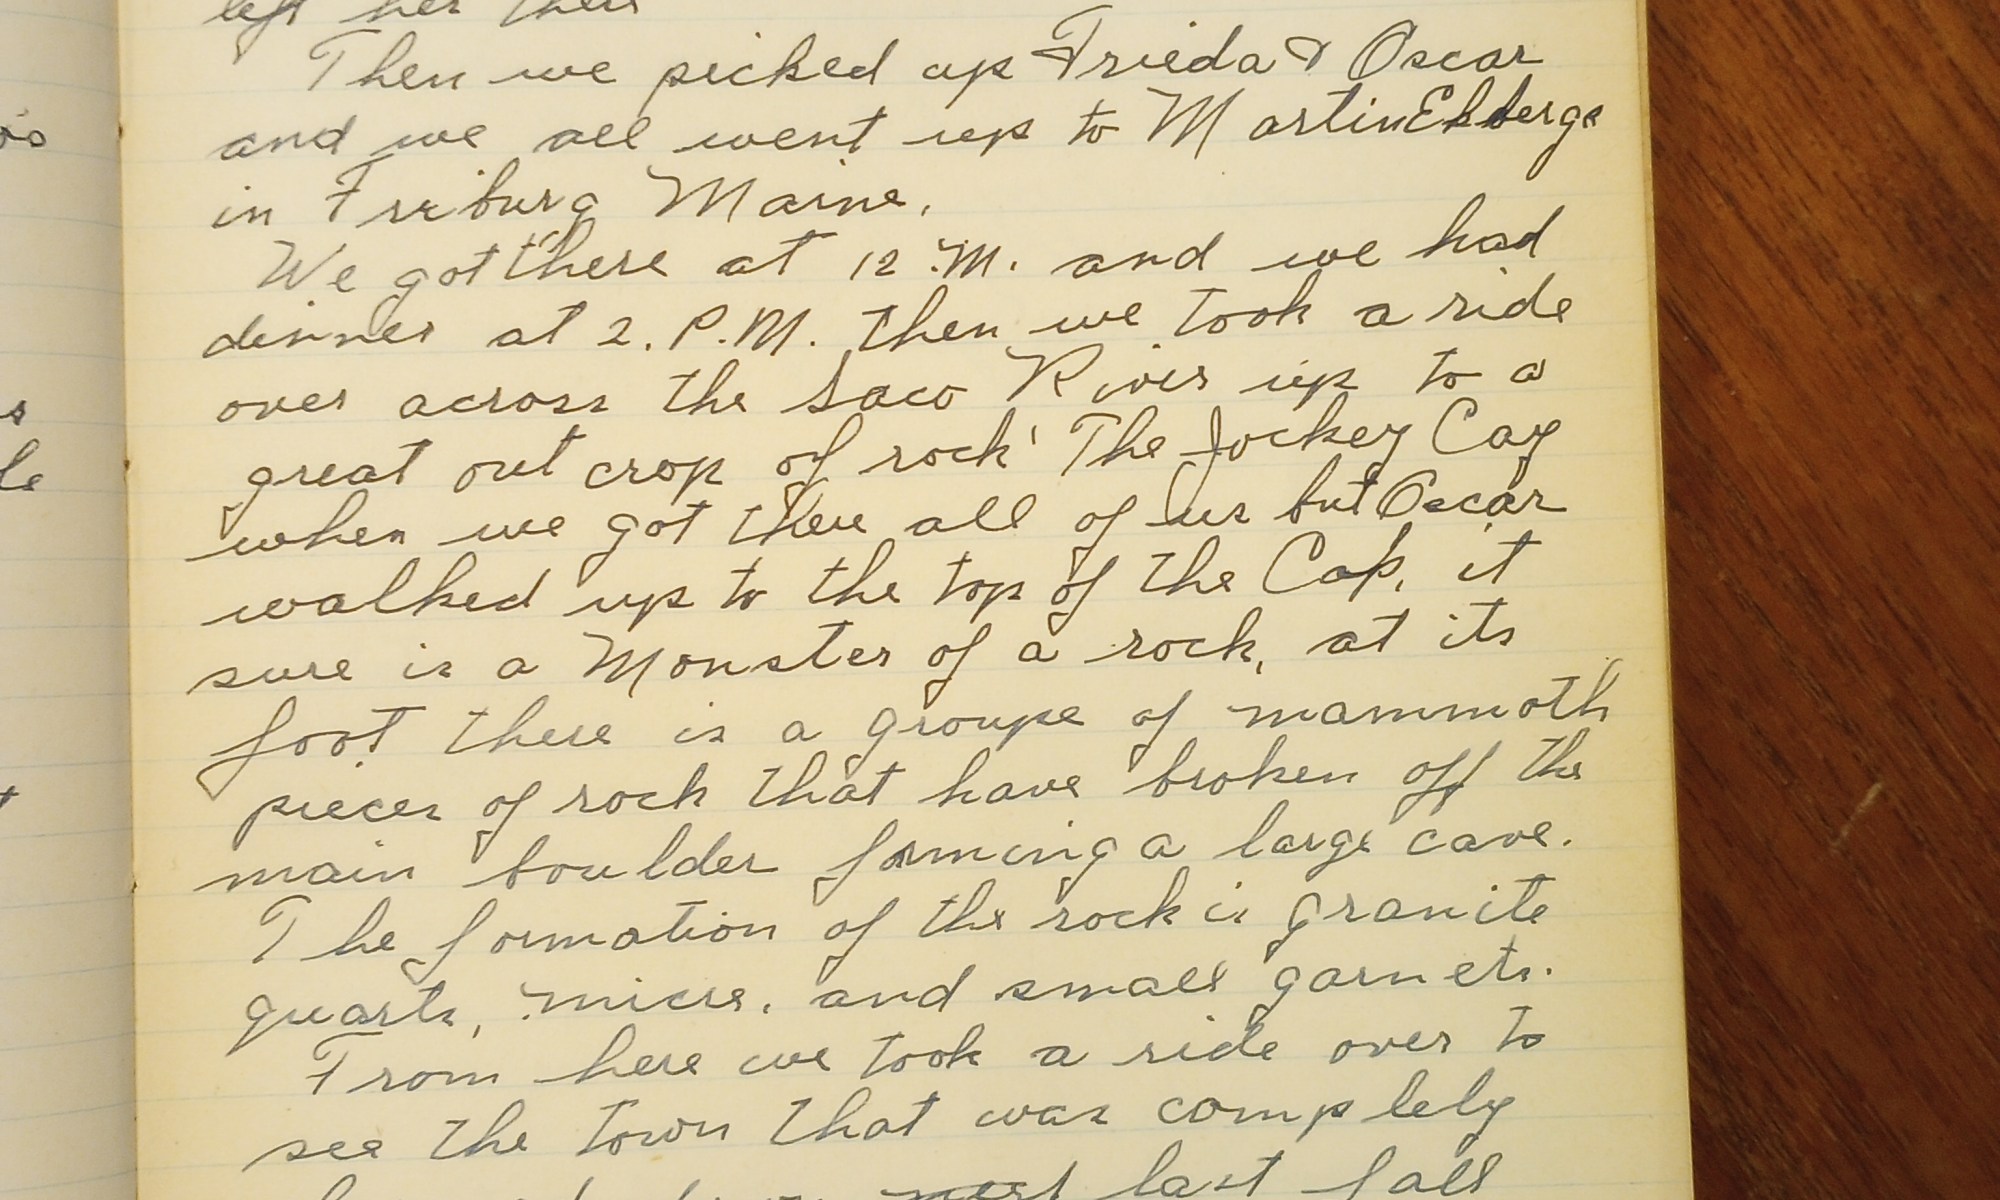 left her there
Then we picked up Frieda & Oscar
and we all went up to Martin Ekberge
in Friburg Maine.
We got there at 12 M. and we had
dinner at 2. P.M. then we took a ride
over across the Saco River up to a
great out crop of rock' The Jockey Cay
when we got there all of us but Oscar
walked up to the top of the Cap, it
sure is a Monster of a rock, at its
foot there is a groupe of mammoth
pieces of rock that have broken off the
main boulder forming a large cave.
The formation of the rock is granite
quarts, micre, and small garnets.
From here we took a ride over to
see the town that was complely
last fall